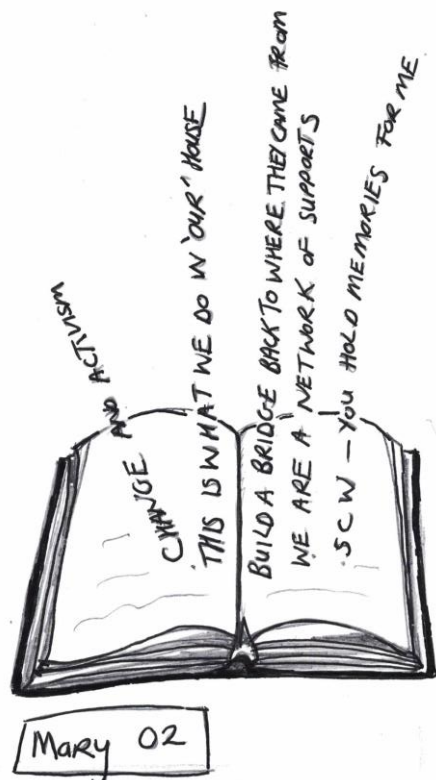 CHANGE AND ACTIVISM
THIS IS WHAT WE DO IN 'OUR' HOUSE
BUILD A BRIDGE BACK TO WHERE THEY CAME FROM
WE ARE A NETWORK OF SUPPORTS
SCW – YOU HOLD MEMORIES FOR ME
MARY 02